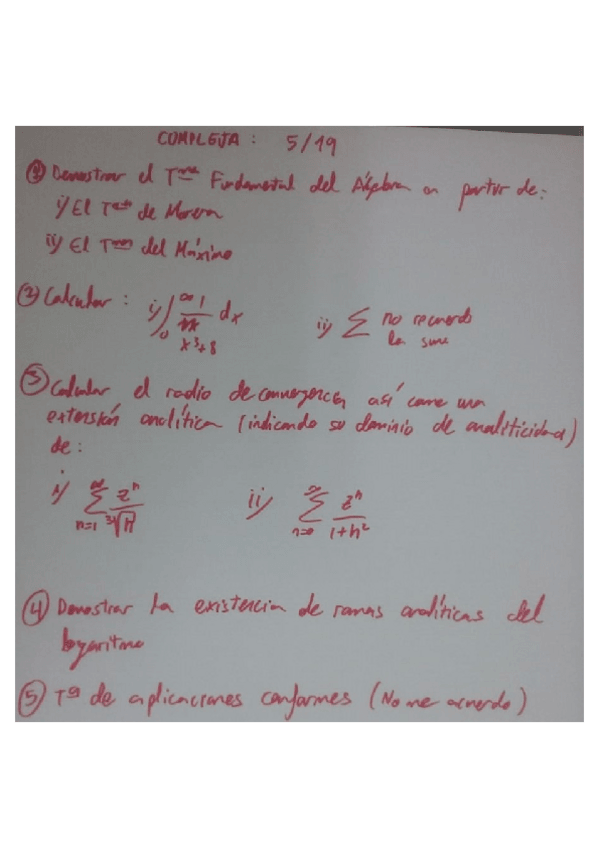 COMPLEJA : 5/19
① Demostrar el Tma Fundamental del Álgebra a partir de:
i) El Tma de Morera
ii) El Tma del Máximo
② Calcular : i) ∫₀^∞ 1/(x³+8) dx ii) Σ no recuerdo la suma
③ Calcular el radio de convergencia así como una
extensión analítica (indicando su dominio de analiticidad)
de:
i) Σ_{n=1}^∞ zⁿ/∛n ii) Σ_{n=0}^∞ zⁿ/(1+n²)
④ Demostrar la existencia de ramas analíticas del
logaritmo
⑤ Tª de aplicaciones conformes (No me acuerdo)